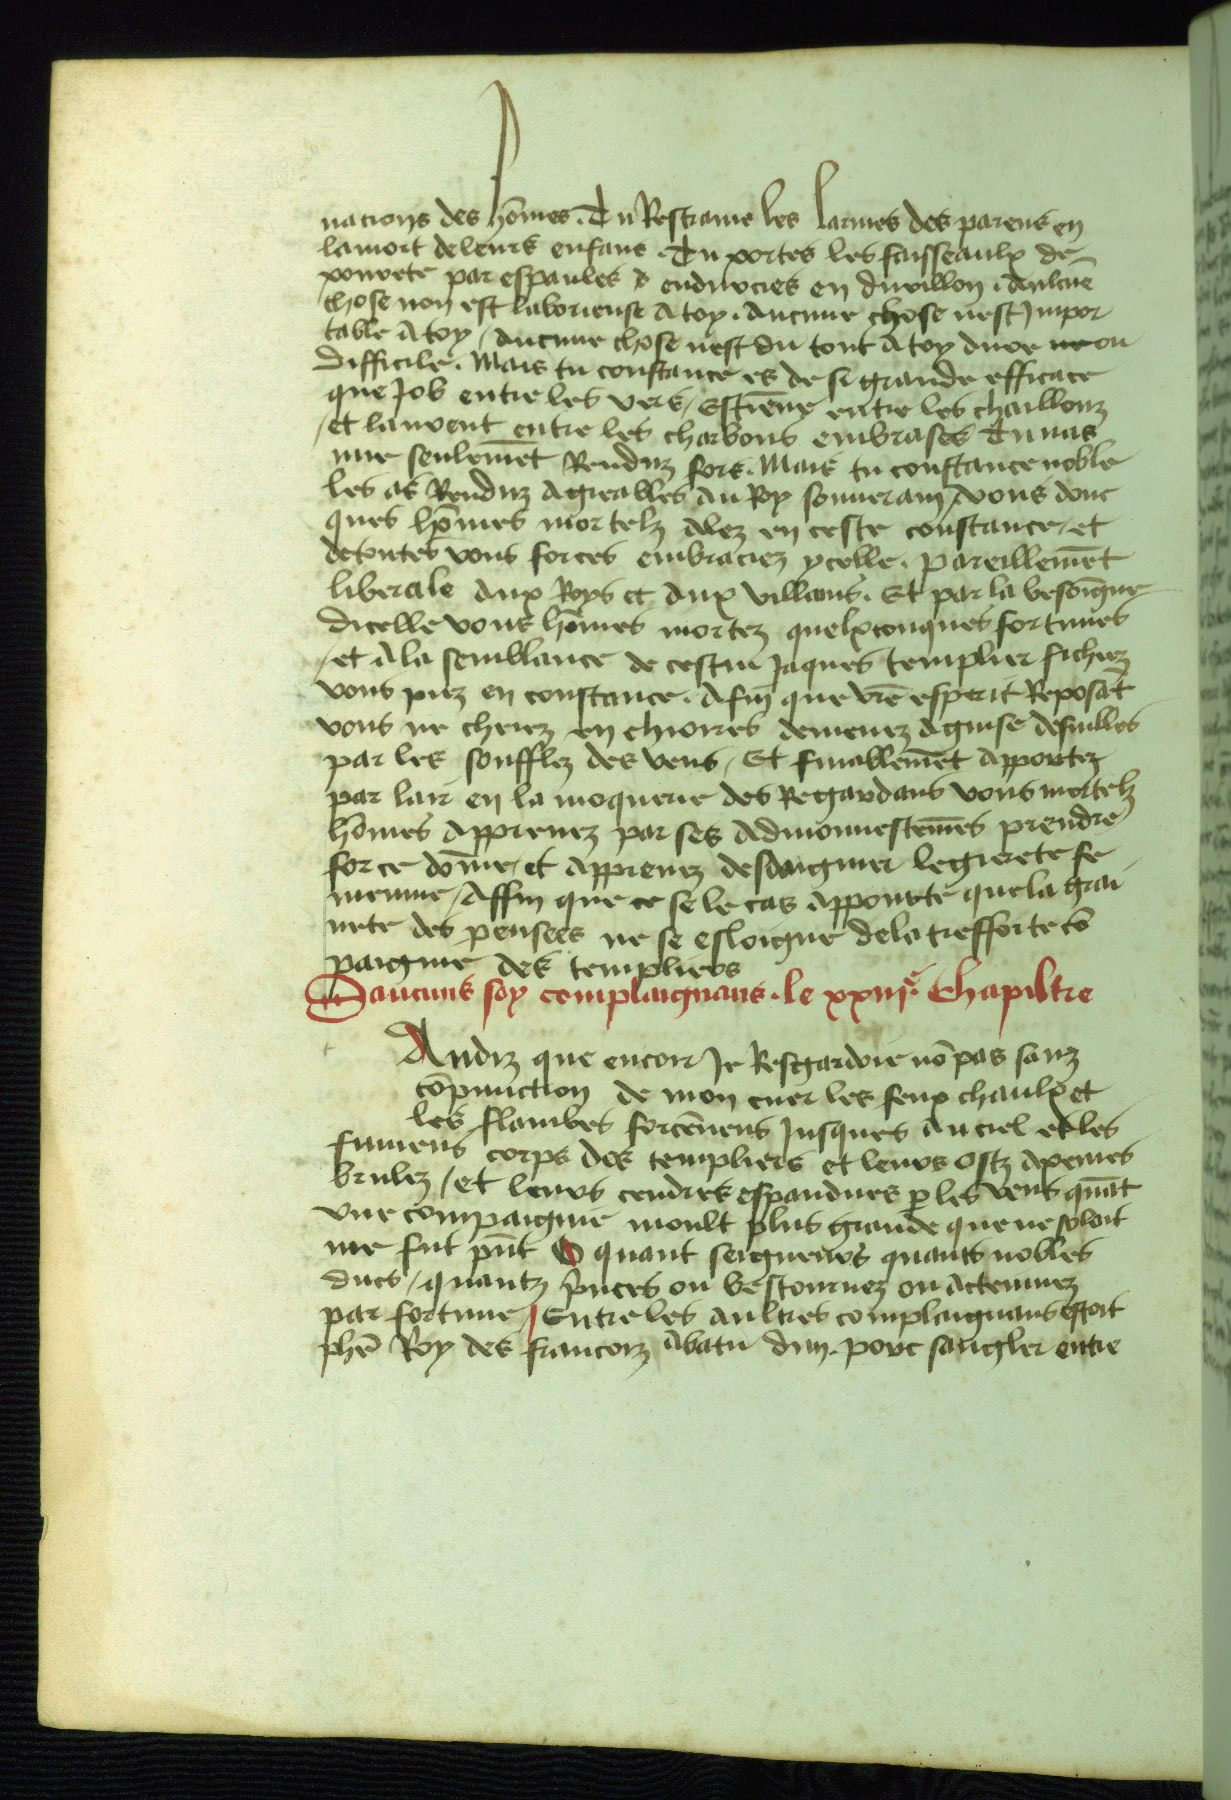 nacions des hōmes. Tu Restrains les larmes des parens en
la mort de leurs enfans. Tu portes les faisseaulx de
povrete par espaules endurcies en durillon. Aulcūe
chose non est laborieuse A toy. Aucune chose nest Jmpor
table A toy / Aucune chose nest du tout A toy dure ne ou
difficile. Mais tu constance es de si grande efficace
que Job entre les vers / Estiēne entre les chaillouz
/ et laurent entre les charbons embrases Tu nas
mie seulemēt Renduz fors. Mais tu constance noble
les as Renduz Agreables Au Roy souverain / Vous donc
ques hōmes mortelz Alez en ceste constance / et
de toutes vous forces embraciez ycelle. Pareillemēt
liberale Aux Roys et Aux villains. Et par la besoīgne
dicelle vous hōmes mortez quelxconques fortunes
/ et A la semblance de cestui Jaques templier fichiez
vous piez en constance. Afin que vr̄e esperit Reposāt
vous ne cheiez en chiorres demenez A guise de fuilles
par les soufflez des vens / Et finablemēt Apportez
par lair en la moquerie des Regardans vous mortelz
hōmes Apprenez par ses Admonnestemēs prendre
force dōme / et Apprenez desdaignier legierete fe
menine / Affin que ce se le cas Apporte que la grai
nete des pensees ne se esloigne de la tresforte cō
paignie des templiers
Daucuns soy complaignans. le xxiiiȷ.e Chapiltre
Andiz que encor Je Resgardoie nō pas sanz
cōpunction de mon cuer les feux chaulx et
les flambes forcēnens Jusques Au ciel et les
fumens corps des templiers et leurs ostz Apeines
brulez / et leurs cendres espandues p les vens quāt
vne compaignie moult plus grande que ne soloit
me fut pn̄t O quant seigneurs quants nobles
ducs / quantz p̄nces ou bestournez ou Actennez
par fortune / Entre les aultres complaignans estoit
phē Roy des francoiz Abatu dun porc sanglier entre